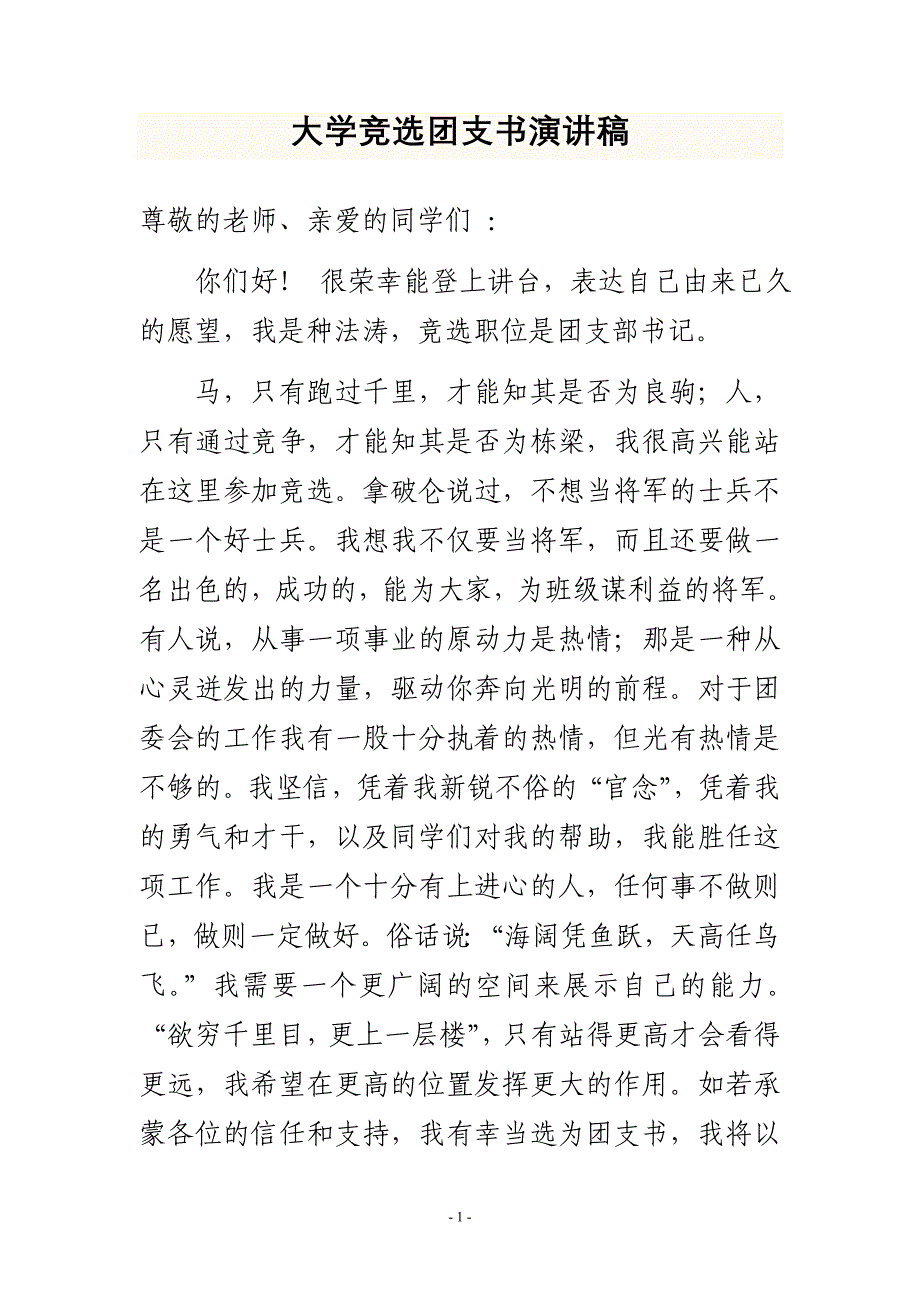 大学竞选团支书演讲稿
尊敬的老师、亲爱的同学们 ：
你们好！ 很荣幸能登上讲台，表达自己由来已久
的愿望，我是种法涛，竞选职位是团支部书记。
马，只有跑过千里，才能知其是否为良驹；人，
只有通过竞争，才能知其是否为栋梁，我很高兴能站
在这里参加竞选。拿破仑说过，不想当将军的士兵不
是一个好士兵。我想我不仅要当将军，而且还要做一
名出色的，成功的，能为大家，为班级谋利益的将军。
有人说，从事一项事业的原动力是热情；那是一种从
心灵迸发出的力量，驱动你奔向光明的前程。对于团
委会的工作我有一股十分执着的热情，但光有热情是
不够的。我坚信，凭着我新锐不俗的“官念”，凭着我
的勇气和才干，以及同学们对我的帮助，我能胜任这
项工作。我是一个十分有上进心的人，任何事不做则
已，做则一定做好。俗话说：“海阔凭鱼跃，天高任鸟
飞。”我需要一个更广阔的空间来展示自己的能力。
“欲穷千里目，更上一层楼”，只有站得更高才会看得
更远，我希望在更高的位置发挥更大的作用。如若承
蒙各位的信任和支持，我有幸当选为团支书，我将以
- 1 -